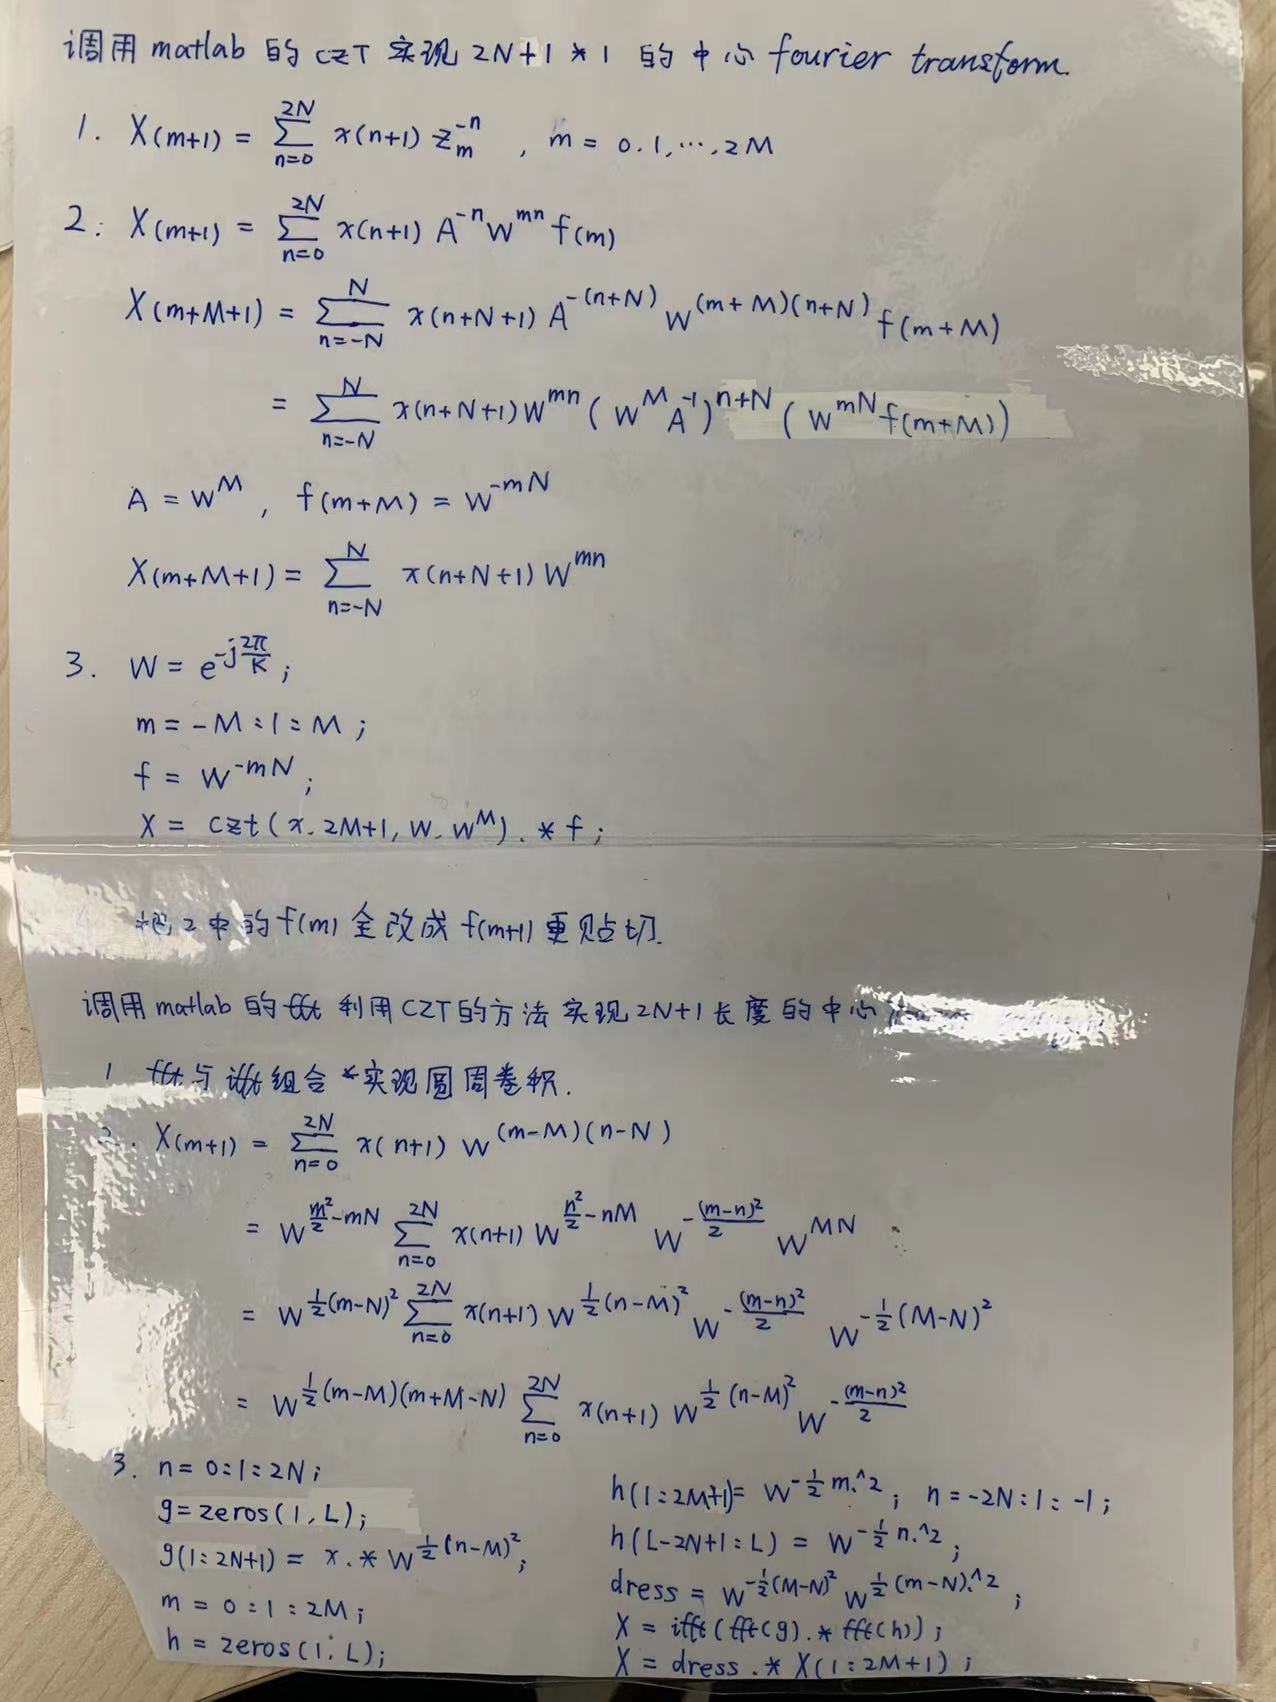 调用 matlab 的 CZT 实现 2N+1 * 1 的中心 fourier transform.
1. X(m+1) = ∑_{n=0}^{2N} x(n+1) z_m^{-n} , m = 0.1,…,2M
2. X(m+1) = ∑_{n=0}^{2N} x(n+1) A^{-n} W^{mn} f(m)
X(m+M+1) = ∑_{n=-N}^{N} x(n+N+1) A^{-(n+N)} W^{(m+M)(n+N)} f(m+M)
= ∑_{n=-N}^{N} x(n+N+1) W^{mn} (W^M A^{-1})^{n+N} (W^{mN} f(m+M))
A = W^M , f(m+M) = W^{-mN}
X(m+M+1) = ∑_{n=-N}^{N} x(n+N+1) W^{mn}
3. W = e^{-j\frac{2π}{K}} ;
m = -M:1:M ;
f = W^{-mN} ;
X = czt(x. 2M+1, W. W^M) .* f ;
把 2 中的 f(m) 全改成 f(m+1) 更贴切.
调用 matlab 的 fft 利用 CZT 的方法 实现 2N+1 长度的中心
1 fft 与 ifft 组合 实现圆周卷积.
2. X(m+1) = ∑_{n=0}^{2N} x(n+1) W^{(m-M)(n-N)}
= W^{\frac{m^2}{2}-mN} ∑_{n=0}^{2N} x(n+1) W^{\frac{n^2}{2}-nM} W^{-\frac{(m-n)^2}{2}} W^{MN}
= W^{\frac{1}{2}(m-N)^2} ∑_{n=0}^{2N} x(n+1) W^{\frac{1}{2}(n-M)^2} W^{-\frac{(m-n)^2}{2}} W^{-\frac{1}{2}(M-N)^2}
= W^{\frac{1}{2}(m-M)(m+M-N)} ∑_{n=0}^{2N} x(n+1) W^{\frac{1}{2}(n-M)^2} W^{-\frac{(m-n)^2}{2}}
3. n = 0:1:2N ;
g = zeros(1, L);
g(1:2N+1) = x.* W^{\frac{1}{2}(n-M)^2} ;
m = 0:1:2M ;
h = zeros(1, L);
h(1:2M+1) = W^{-\frac{1}{2} m.^2} ; n = -2N:1:-1 ;
h(L-2N+1:L) = W^{-\frac{1}{2} n.^2} ;
dress = W^{-\frac{1}{2}(M-N)^2} W^{\frac{1}{2}(m-N).^2} ;
X = ifft(fft(g).* fft(h)) ;
X = dress .* X(1:2M+1) ;